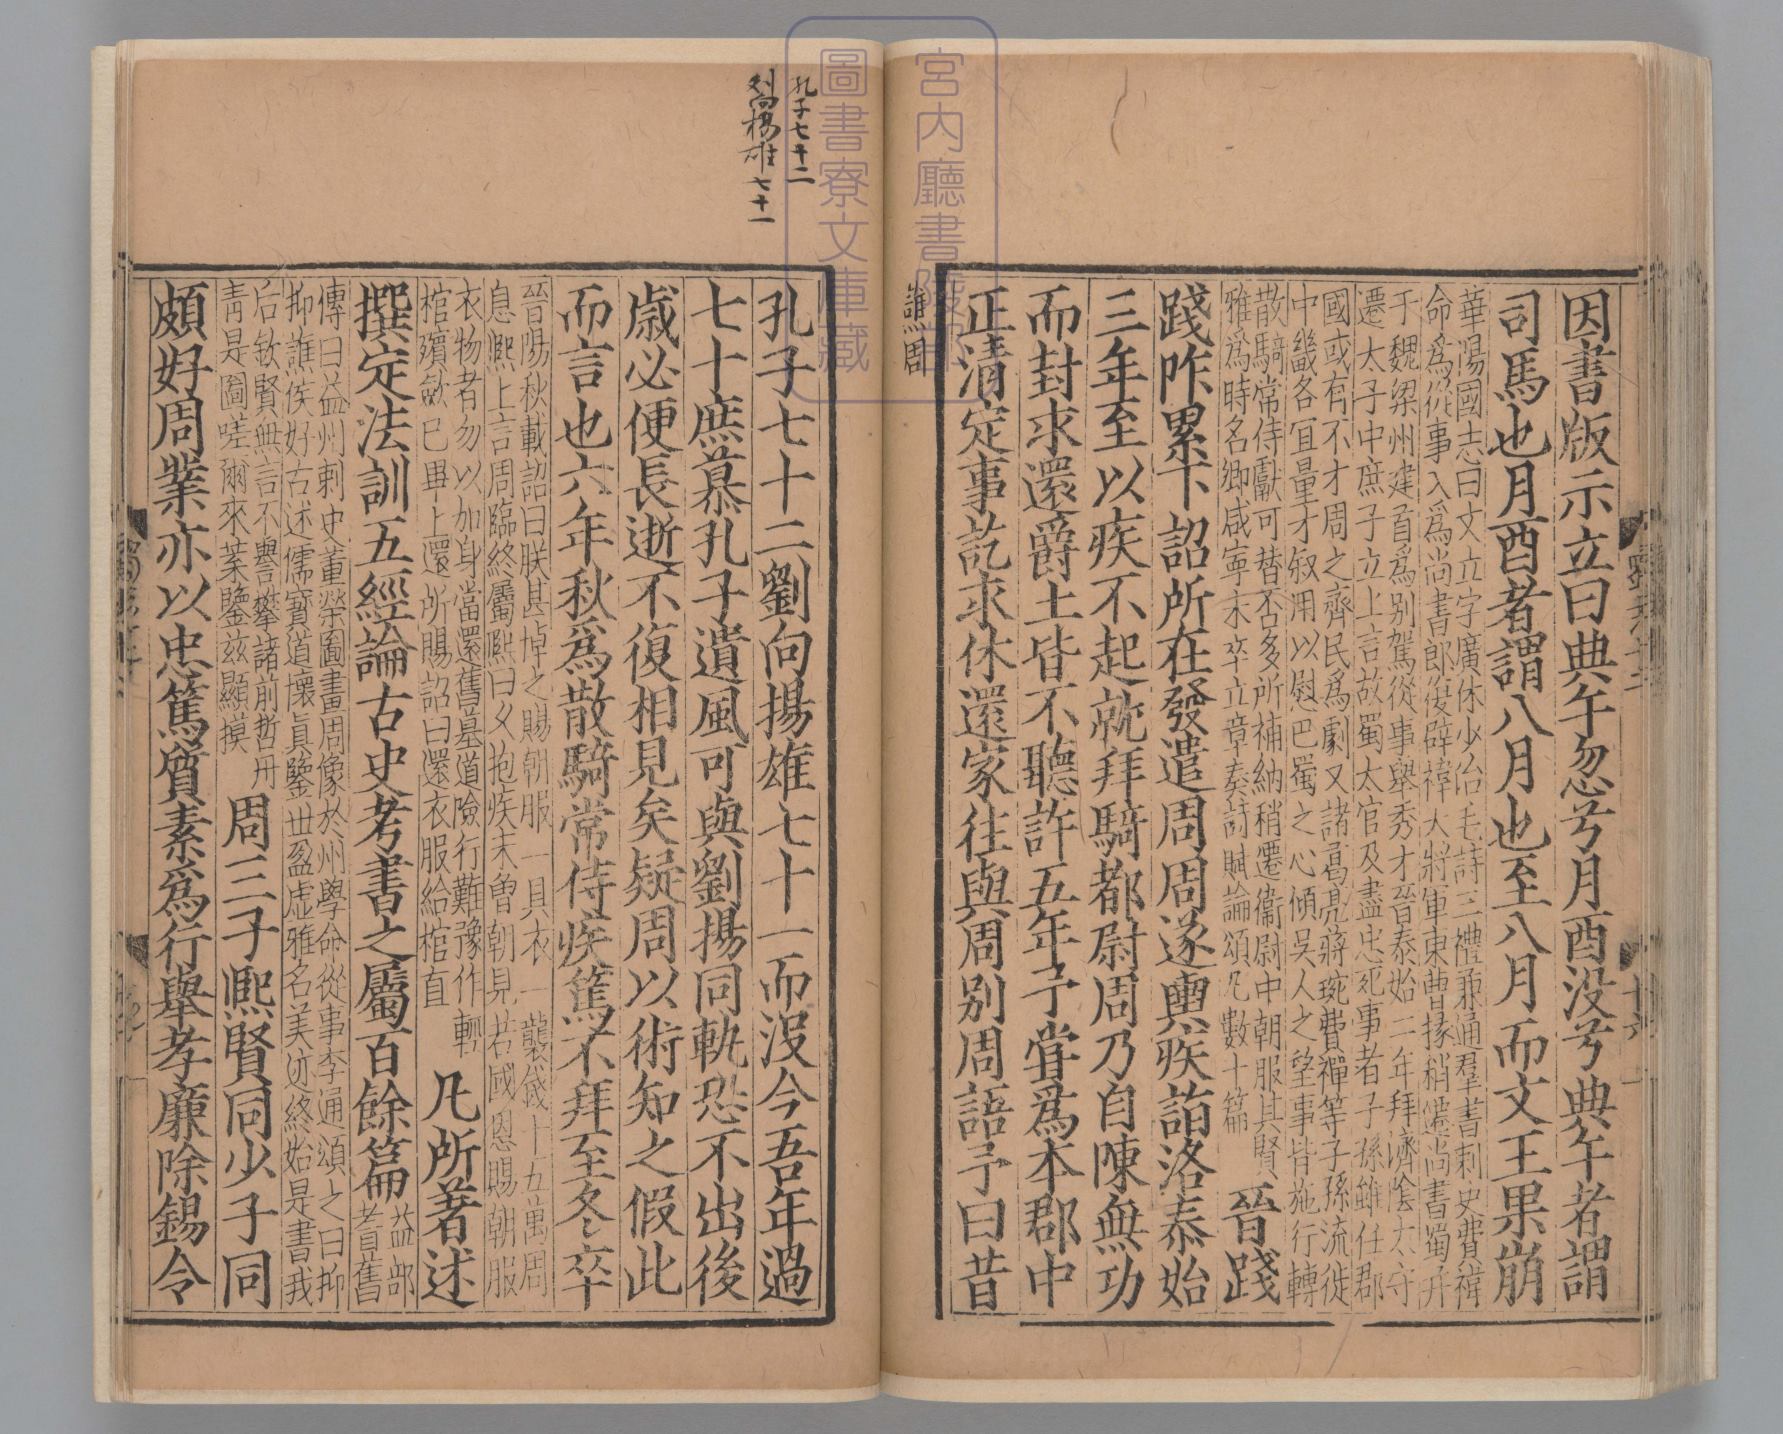 因書版示立曰典午忽兮月酉没兮典午者謂
司馬也月酉者謂八月也至八月而文王果崩
華陽國志曰文立字廣休少治毛詩三禮兼通群書刺史費禕
命爲從事入爲尚書郎復辟禕大將軍東曹掾稍遷尚書蜀并
于魏梁州建首爲别駕從事舉秀才晉泰始二年拜濟隂太守
遷太子中庶子立上言故蜀太官及盡忠死事者子孫雖仕郡
國或有不才周之齊民爲劇又諸葛亮蔣琬費禕等子孫流徙
中畿各宜量才叙用以慰巴蜀之心傾吳人之望事皆施行轉
散騎常侍獻可替否多所補納稍遷衞尉中朝服其賢
雅爲時名卿咸寧末卒立章奏詩賦論頌凡數十篇
晉踐
踐阼累下詔所在發遣周周遂輿疾詣洛泰始
三年至以疾不起就拜騎都尉周乃自陳無功
而封求還爵土皆不聽許五年予嘗爲本郡中
正清定事訖求休還家往與周别周語予曰昔
譙周
孔子七十二
刘向楊雄七十一
孔子七十二劉向揚雄七十一而没今吾年過
七十庶慕孔子遺風可與劉揚同軌恐不出後
歲必便長逝不復相見矣疑周以術知之假此
而言也六年秋爲散騎常侍疾篤不拜至冬卒
晉陽秋載詔曰朕甚悼之賜朝服一具衣一襲錢十五萬周
息熙上言周臨終屬熙曰乆抱疾未曾朝見若國恩賜朝服
衣物者勿以加身當還舊墓道險行難豫作輕
棺殯斂已畢上還所賜詔曰還衣服給棺直
凡所著述
撰定法訓五經論古史考書之屬百餘篇
益部
耆舊
傳曰益州刺史董榮圖畫周像於州學命從事李通頌之曰抑
抑譙侯好古述儒寶道懷眞鑒世盈虚雅名美迹終始是書我
后欽賢無言不譽攀諸前哲丹
靑是圖嗟爾來葉鑒兹顯摸
周三子熙賢同少子同
頗好周業亦以忠篤質素爲行舉孝廉除錫令
宮内廳書陵部
圖書寮文庫藏